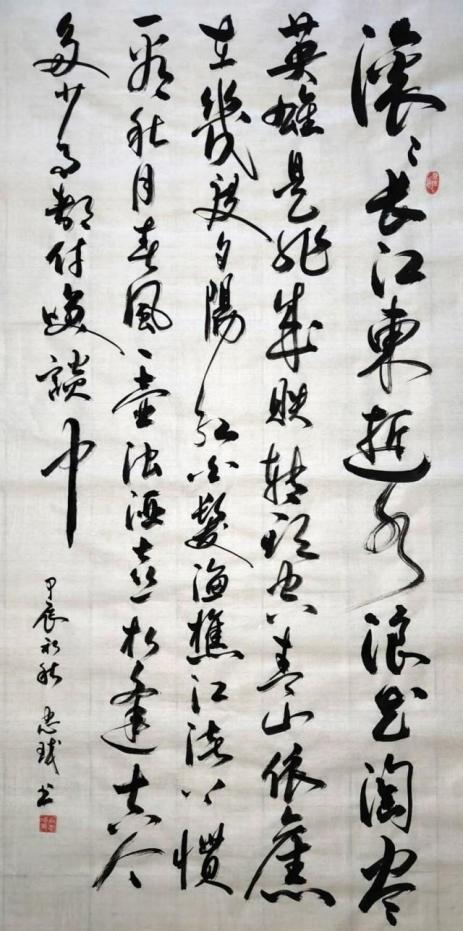 滚滚长江東逝水浪花淘尽
英雄是非成败转头空青山依舊
在幾度夕陽红白髮渔樵江渚上慣
看秋月春風一壶浊酒喜相逢古今
多少事都付笑談中
甲辰初秋 忠诚书